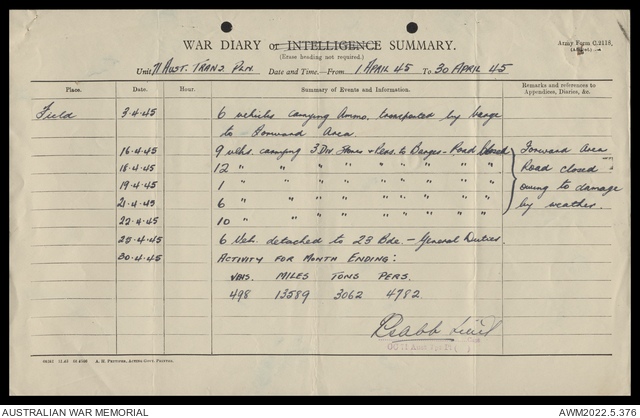 WAR DIARY or INTELLIGENCE SUMMARY.
(Erase heading not required.)
Army Form C.2118.
Unit 71 AUST. TRANS. PLN. Date and Time.—From 1 APRIL 45 To 30 APRIL 45
Place. Date. Hour. Summary of Events and Information. Remarks and references to Appendices, Diaries, &c.
Field 3-4-45 6 vehicles carrying Ammo. transported by barge
to Forward Area
16-4-45 9 vehs. carrying 3 Div. Stores & Pers. to Barges - Road Closed Forward Area
18-4-45 12 " " " " " " " " Road closed
19-4-45 1 " " " " " " " " owing to damage
21-4-45 6 " " " " " " " " by weather.
22-4-45 10 " " " " " " " "
25-4-45 6 Veh. detached to 23 Bde. - General Duties.
30-4-45 ACTIVITY FOR MONTH ENDING:
VEHS. MILES TONS PERS.
498 13589 3062 4782.
Lieut
AUSTRALIAN WAR MEMORIAL
AWM2022.5.376